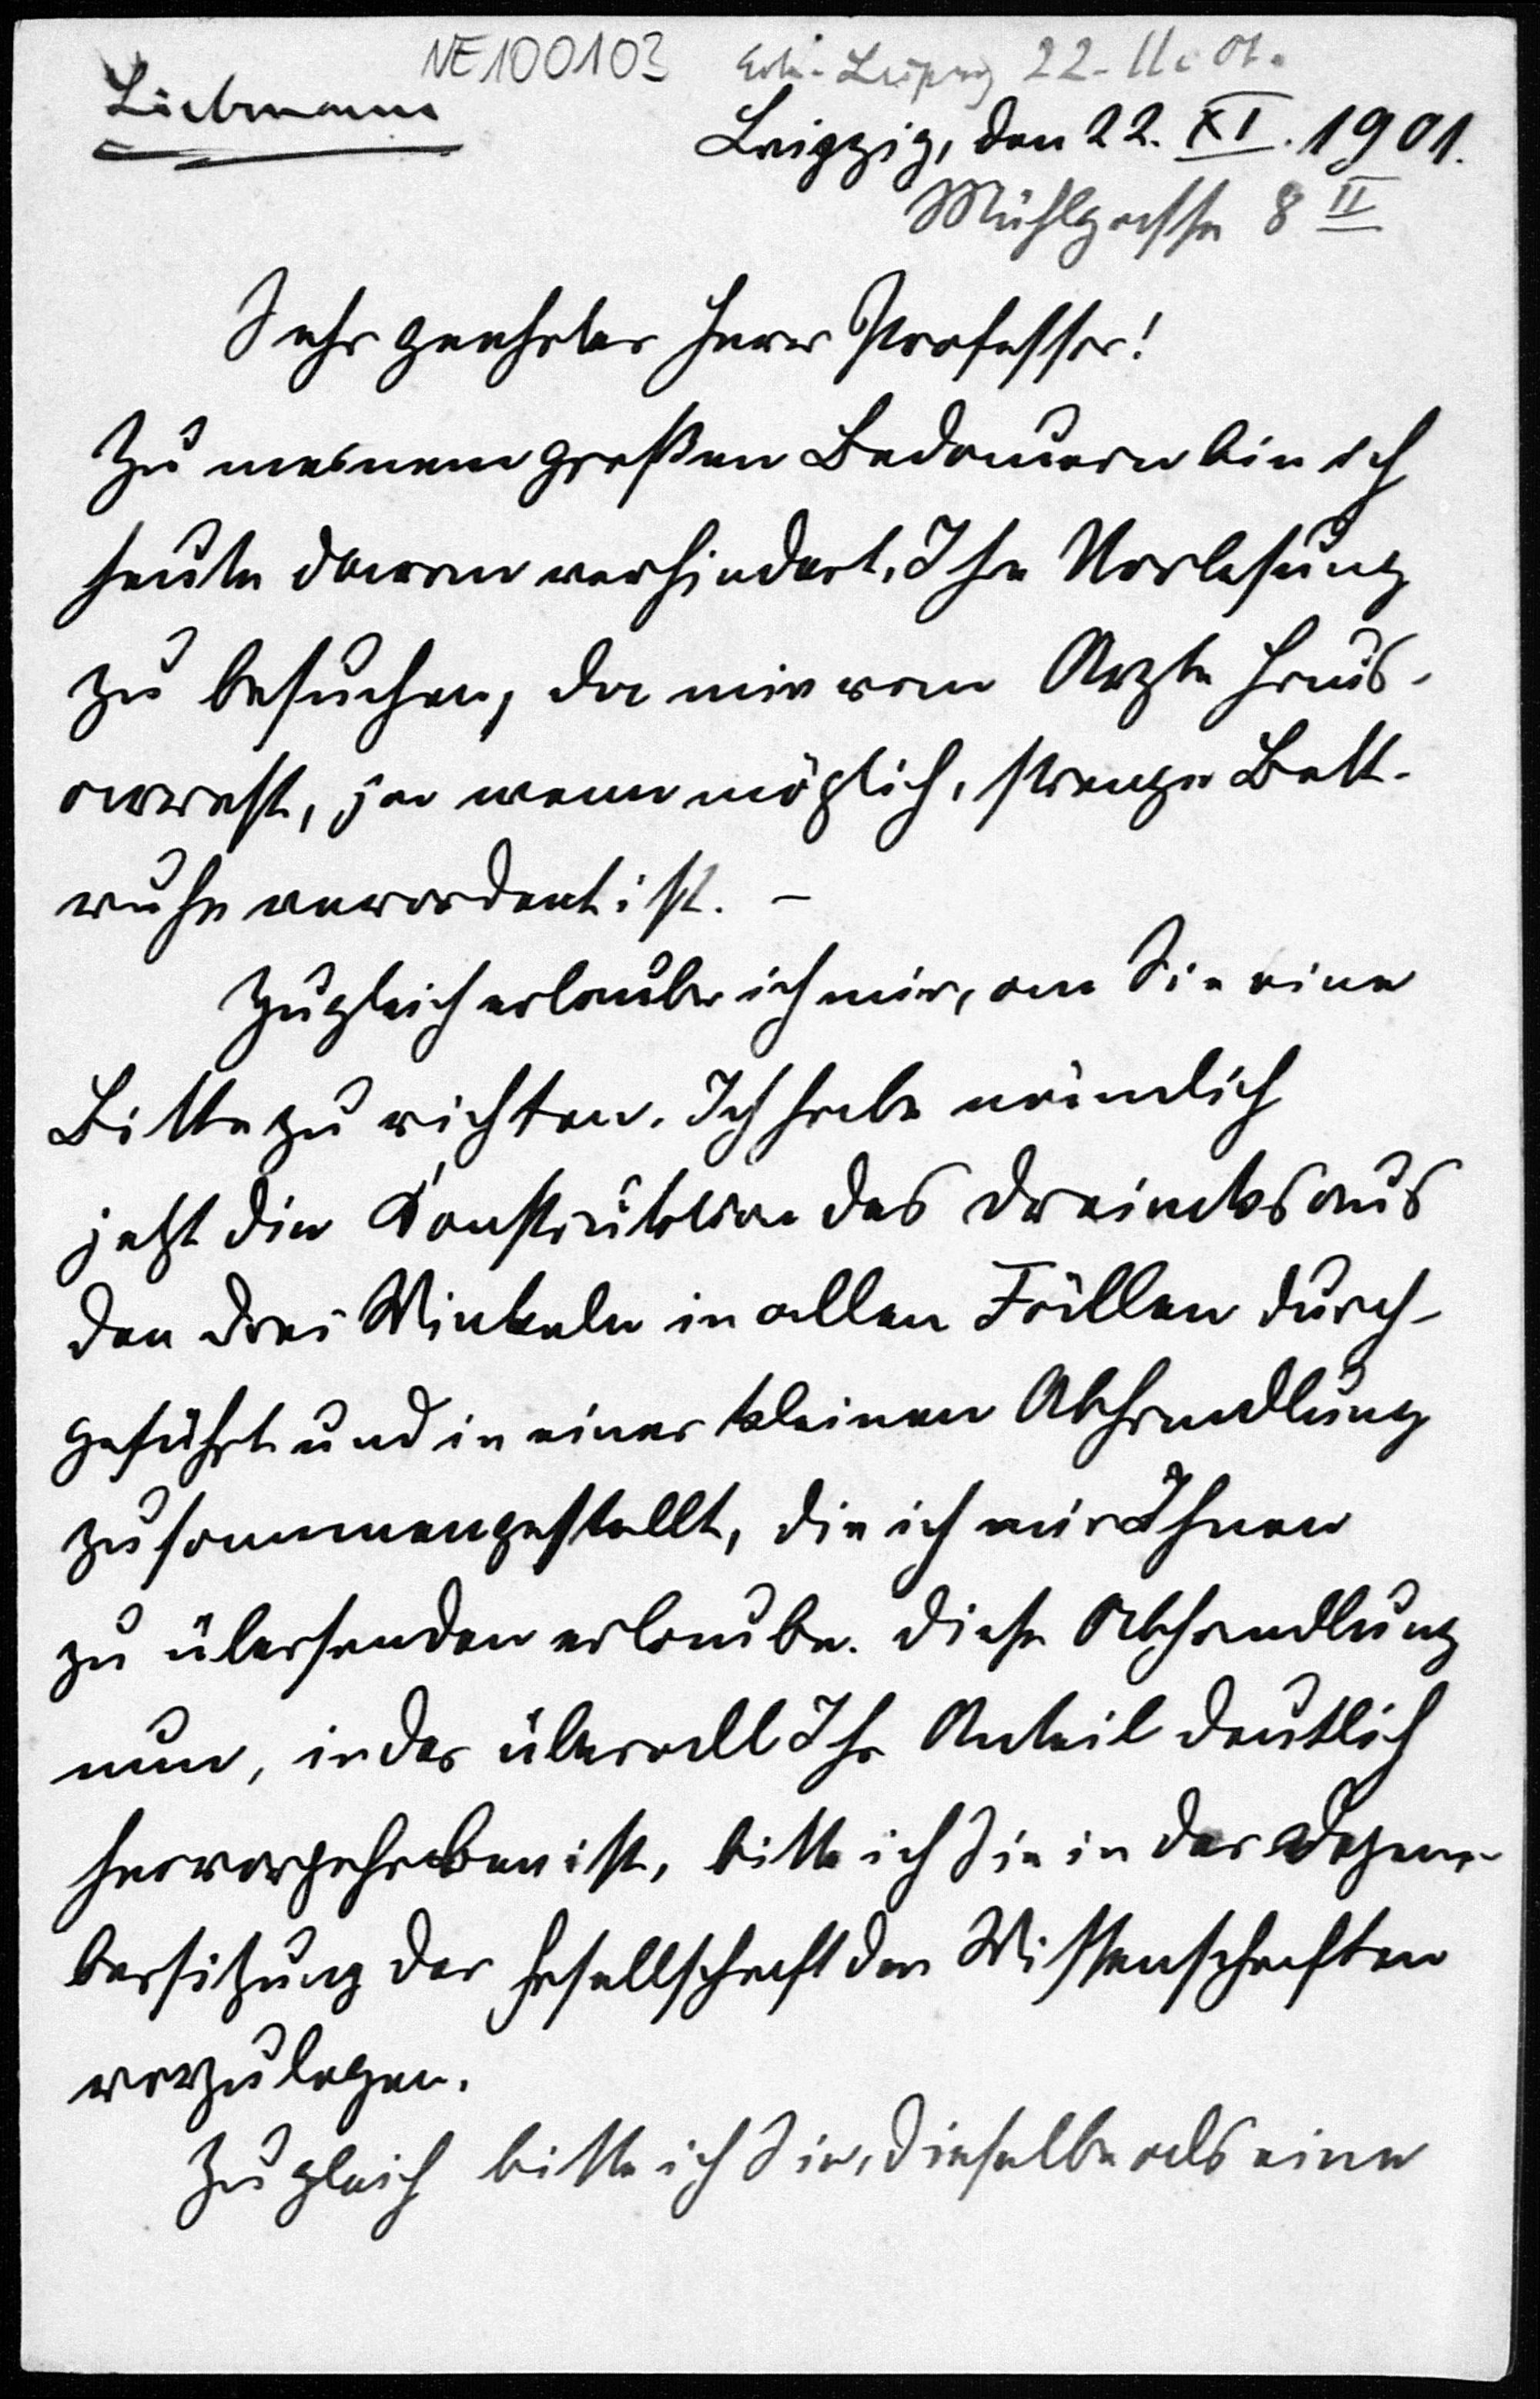 NE100103 Leipzig 22. 11. 01.
Liebmann
Leipzig, den 22. XI. 1901.
Mühlgasse 8 II
Sehr geehrter Herr Professor!
Zu meinem großen Bedauern bin ich
heute daran verhindert, Ihre Vorlesung
zu besuchen, da mir vom Arzte Haus-
arrest, ja wenn möglich, strenge Bett-
ruhe verordnet ist. –
Zugleich erlaube ich mir, an Sie eine
Bitte zu richten. Ich habe nämlich
jetzt die Konstruktion des Dreiecks aus
den drei Winkeln in allen Fällen durch-
geführt und in einer kleinen Abhandlung
zusammengestellt, die ich mir Ihnen
zu übersenden erlaube. Diese Abhandlung
nun, in der überall Ihr Anteil deutlich
hervorgehoben ist, bitte ich Sie in der Dezem-
bersitzung der Gesellschaft der Wissenschaften
vorzulegen.
Zugleich bitte ich Sie, dieselbe als eine